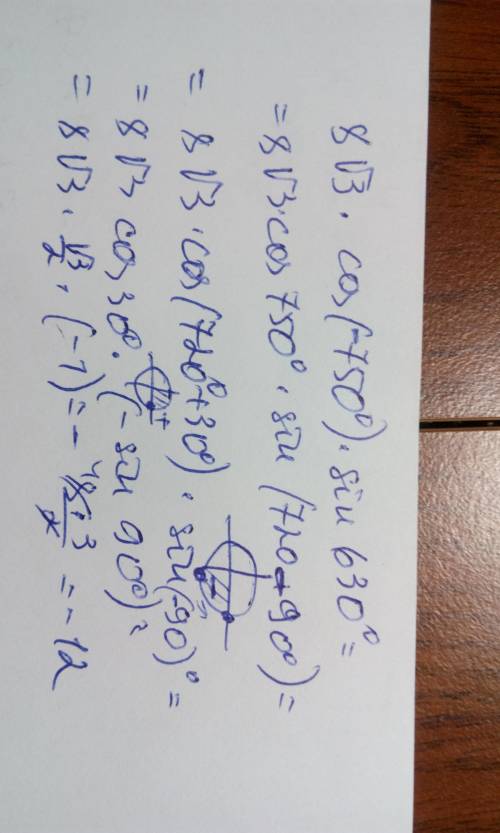 8√3 · cos(-750°) · sin 630° =
= 8√3 · cos 750° · sin (720-90°) =
= 8√3 · cos(720°+30°) · sin(-90)° =
= 8√3 cos 30° · (- sin 90°) =
= 8√3 · √3/2 · (-1) = - 8·3/2 = -12